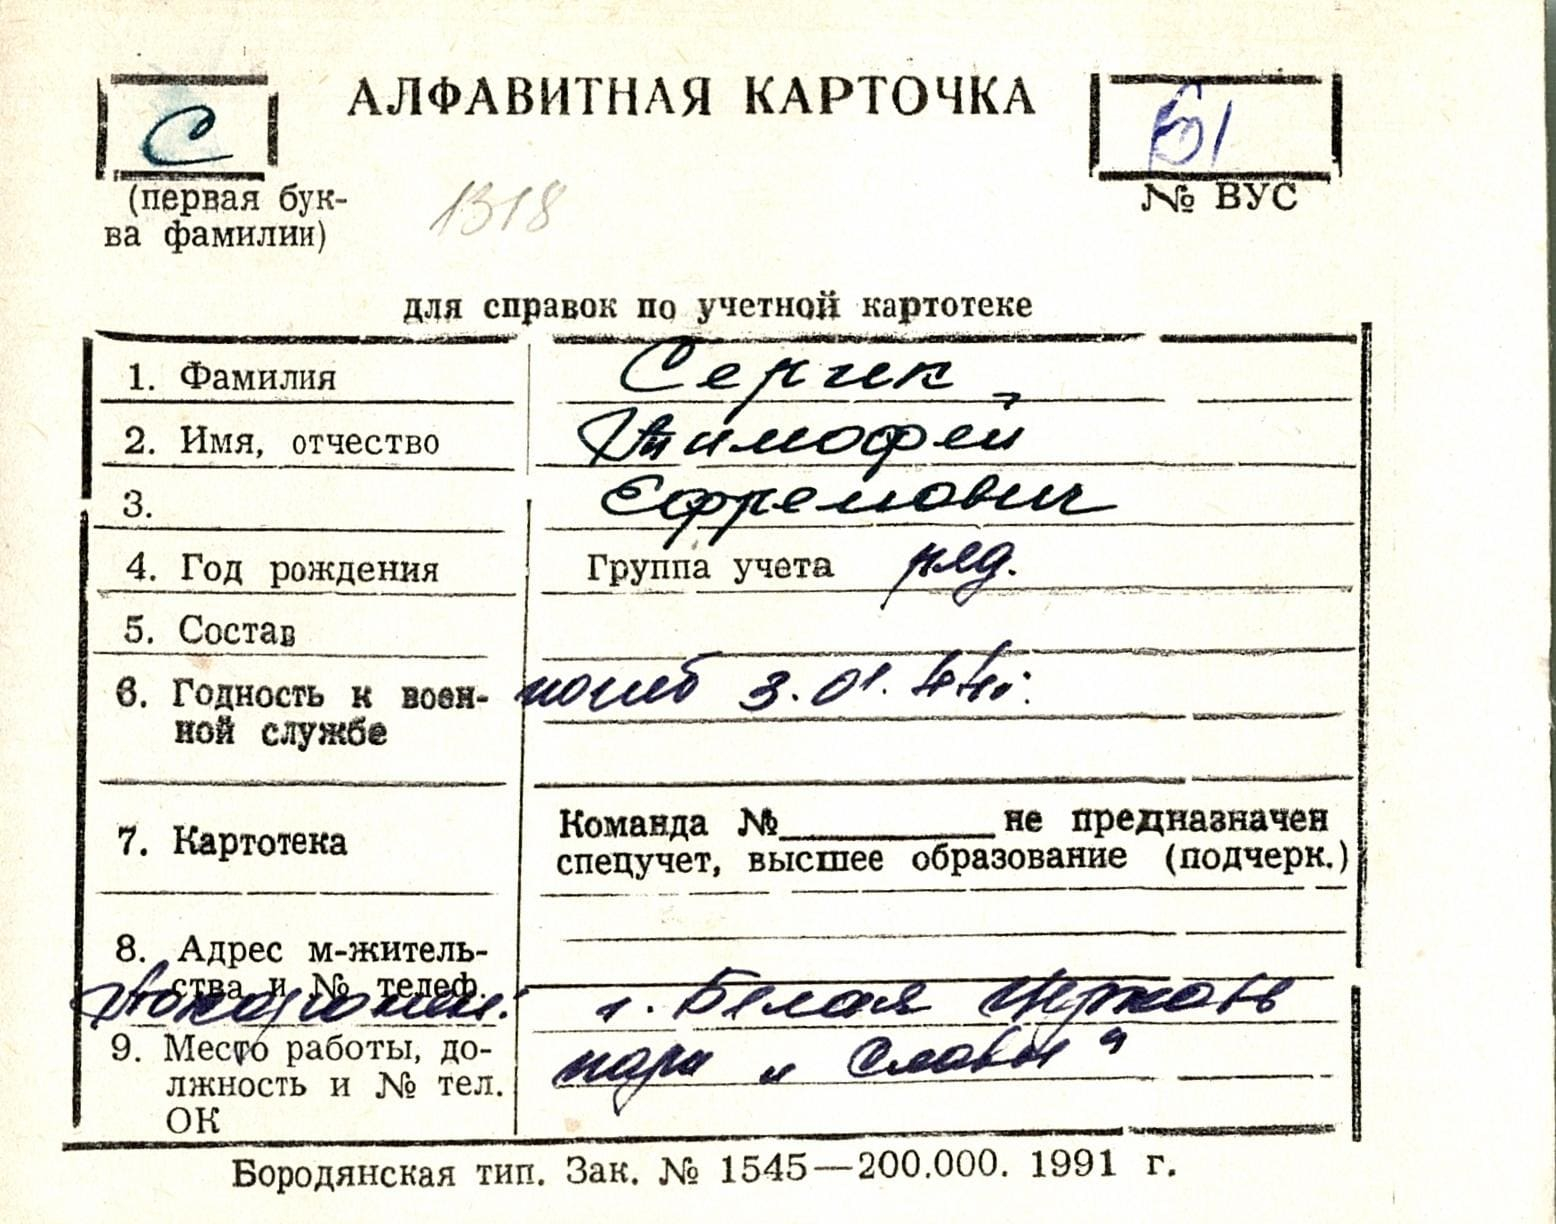 АЛФАВИТНАЯ КАРТОЧКА
С
51
(первая бук-
ва фамилии)
1318
№ ВУС
для справок по учетной картотеке
1. Фамилия Сергик
2. Имя, отчество Тимофей
3. Ефремович
4. Год рождения Группа учета ряд.
5. Состав
6. Годность к воен- погиб 3.01.44г.
ной службе
7. Картотека Команда №__________не предназначен
спецучет, высшее образование (подчерк.)
8. Адрес м-житель-
ства и № телеф.
г. Белая Церковь
9. Место работы, до- парк „Славы"
лжность и № тел.
ОК
Бородянская тип. Зак. № 1545—200.000. 1991 г.